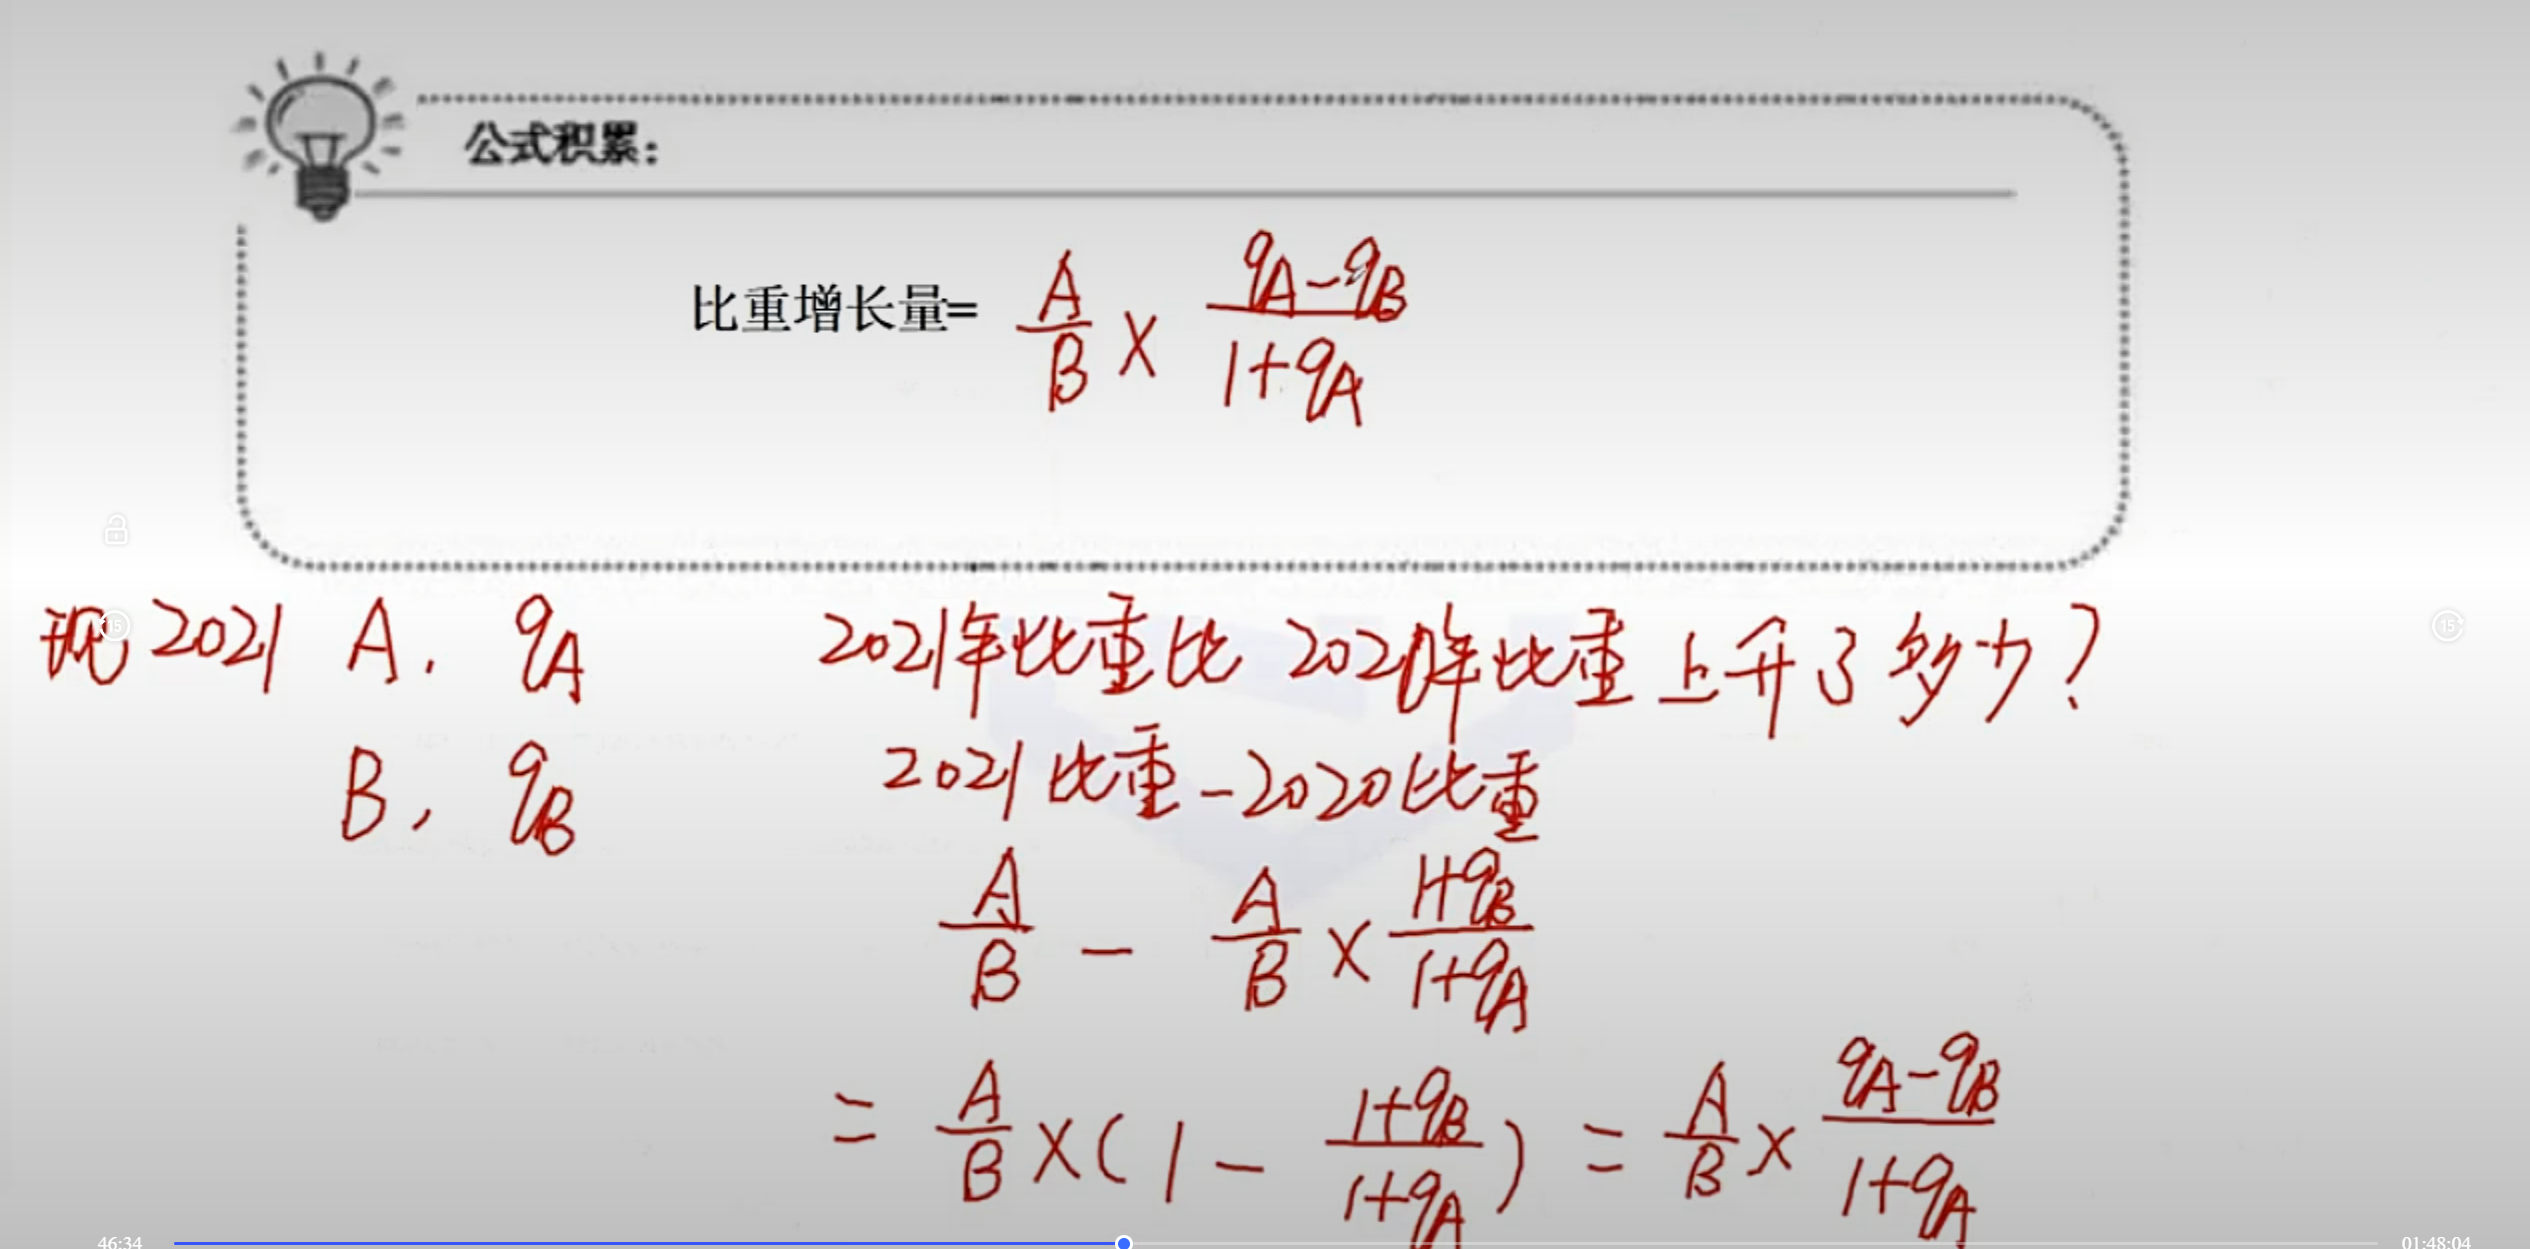 公式积累：
比重增长量= A/B × (qA-qB)/(1+qA)
现 2021 A, qA 2021年比重比 2020年比重上升了多少?
B, qB 2021比重-2020比重
A/B - A/B × (1+qB)/(1+qA)
= A/B × (1 - (1+qB)/(1+qA)) = A/B × (qA-qB)/(1+qA)
46:34 01:48:04